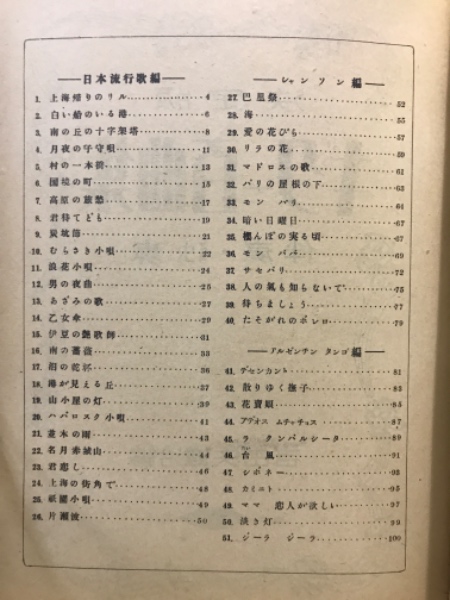 ──日本流行歌編──
1. 上海帰りのリル…………4
2. 白い船のいる港…………6
3. 南の丘の十字架塔…………8
4. 月夜の子守唄…………11
5. 村の一本橋…………13
6. 国境の町…………15
7. 高原の旅愁…………17
8. 君待てども…………19
9. 炭坑節…………21
10. むらさき小唄…………22
11. 浪花小唄…………24
12. 男の夜曲…………25
13. あざみの歌…………27
14. 乙女傘…………29
15. 伊豆の艶歌師…………31
16. 南の薔薇…………33
17. 泪の乾杯…………36
18. 港が見える丘…………37
19. 山小屋の灯…………39
20. ハバロスク小唄…………41
21. 並木の雨…………43
22. 名月赤城山…………44
23. 君恋し…………46
24. 上海の街角で…………48
25. 祇園小唄…………49
26. 片瀬波…………50
──シャンソン編──
27. 巴里祭…………52
28. 海…………55
29. 愛の花びら…………57
30. リラの花…………59
31. マドロスの歌…………61
32. パリの屋根の下…………63
33. モン パリ…………64
34. 暗い日曜日…………67
35. 棚んぼの実る頃…………67
36. モン パパ…………69
37. サセパリ…………72
38. 人の気も知らないで…………75
39. 待ちましょう…………77
40. たそがれのボレロ…………79
──アルゼンチン タンゴ編──
41. デセンカント…………81
42. 散りゆく撫子…………83
43. 花賣娘…………85
44. アデオス ムチャチョス…………87
45. ラ クンパルシータ…………89
46. 台風…………91
47. シボネー…………93
48. カミニト…………95
49. ママ 恋人が欲しい…………97
50. 淡き灯…………99
51. ジーラ ジーラ…………100